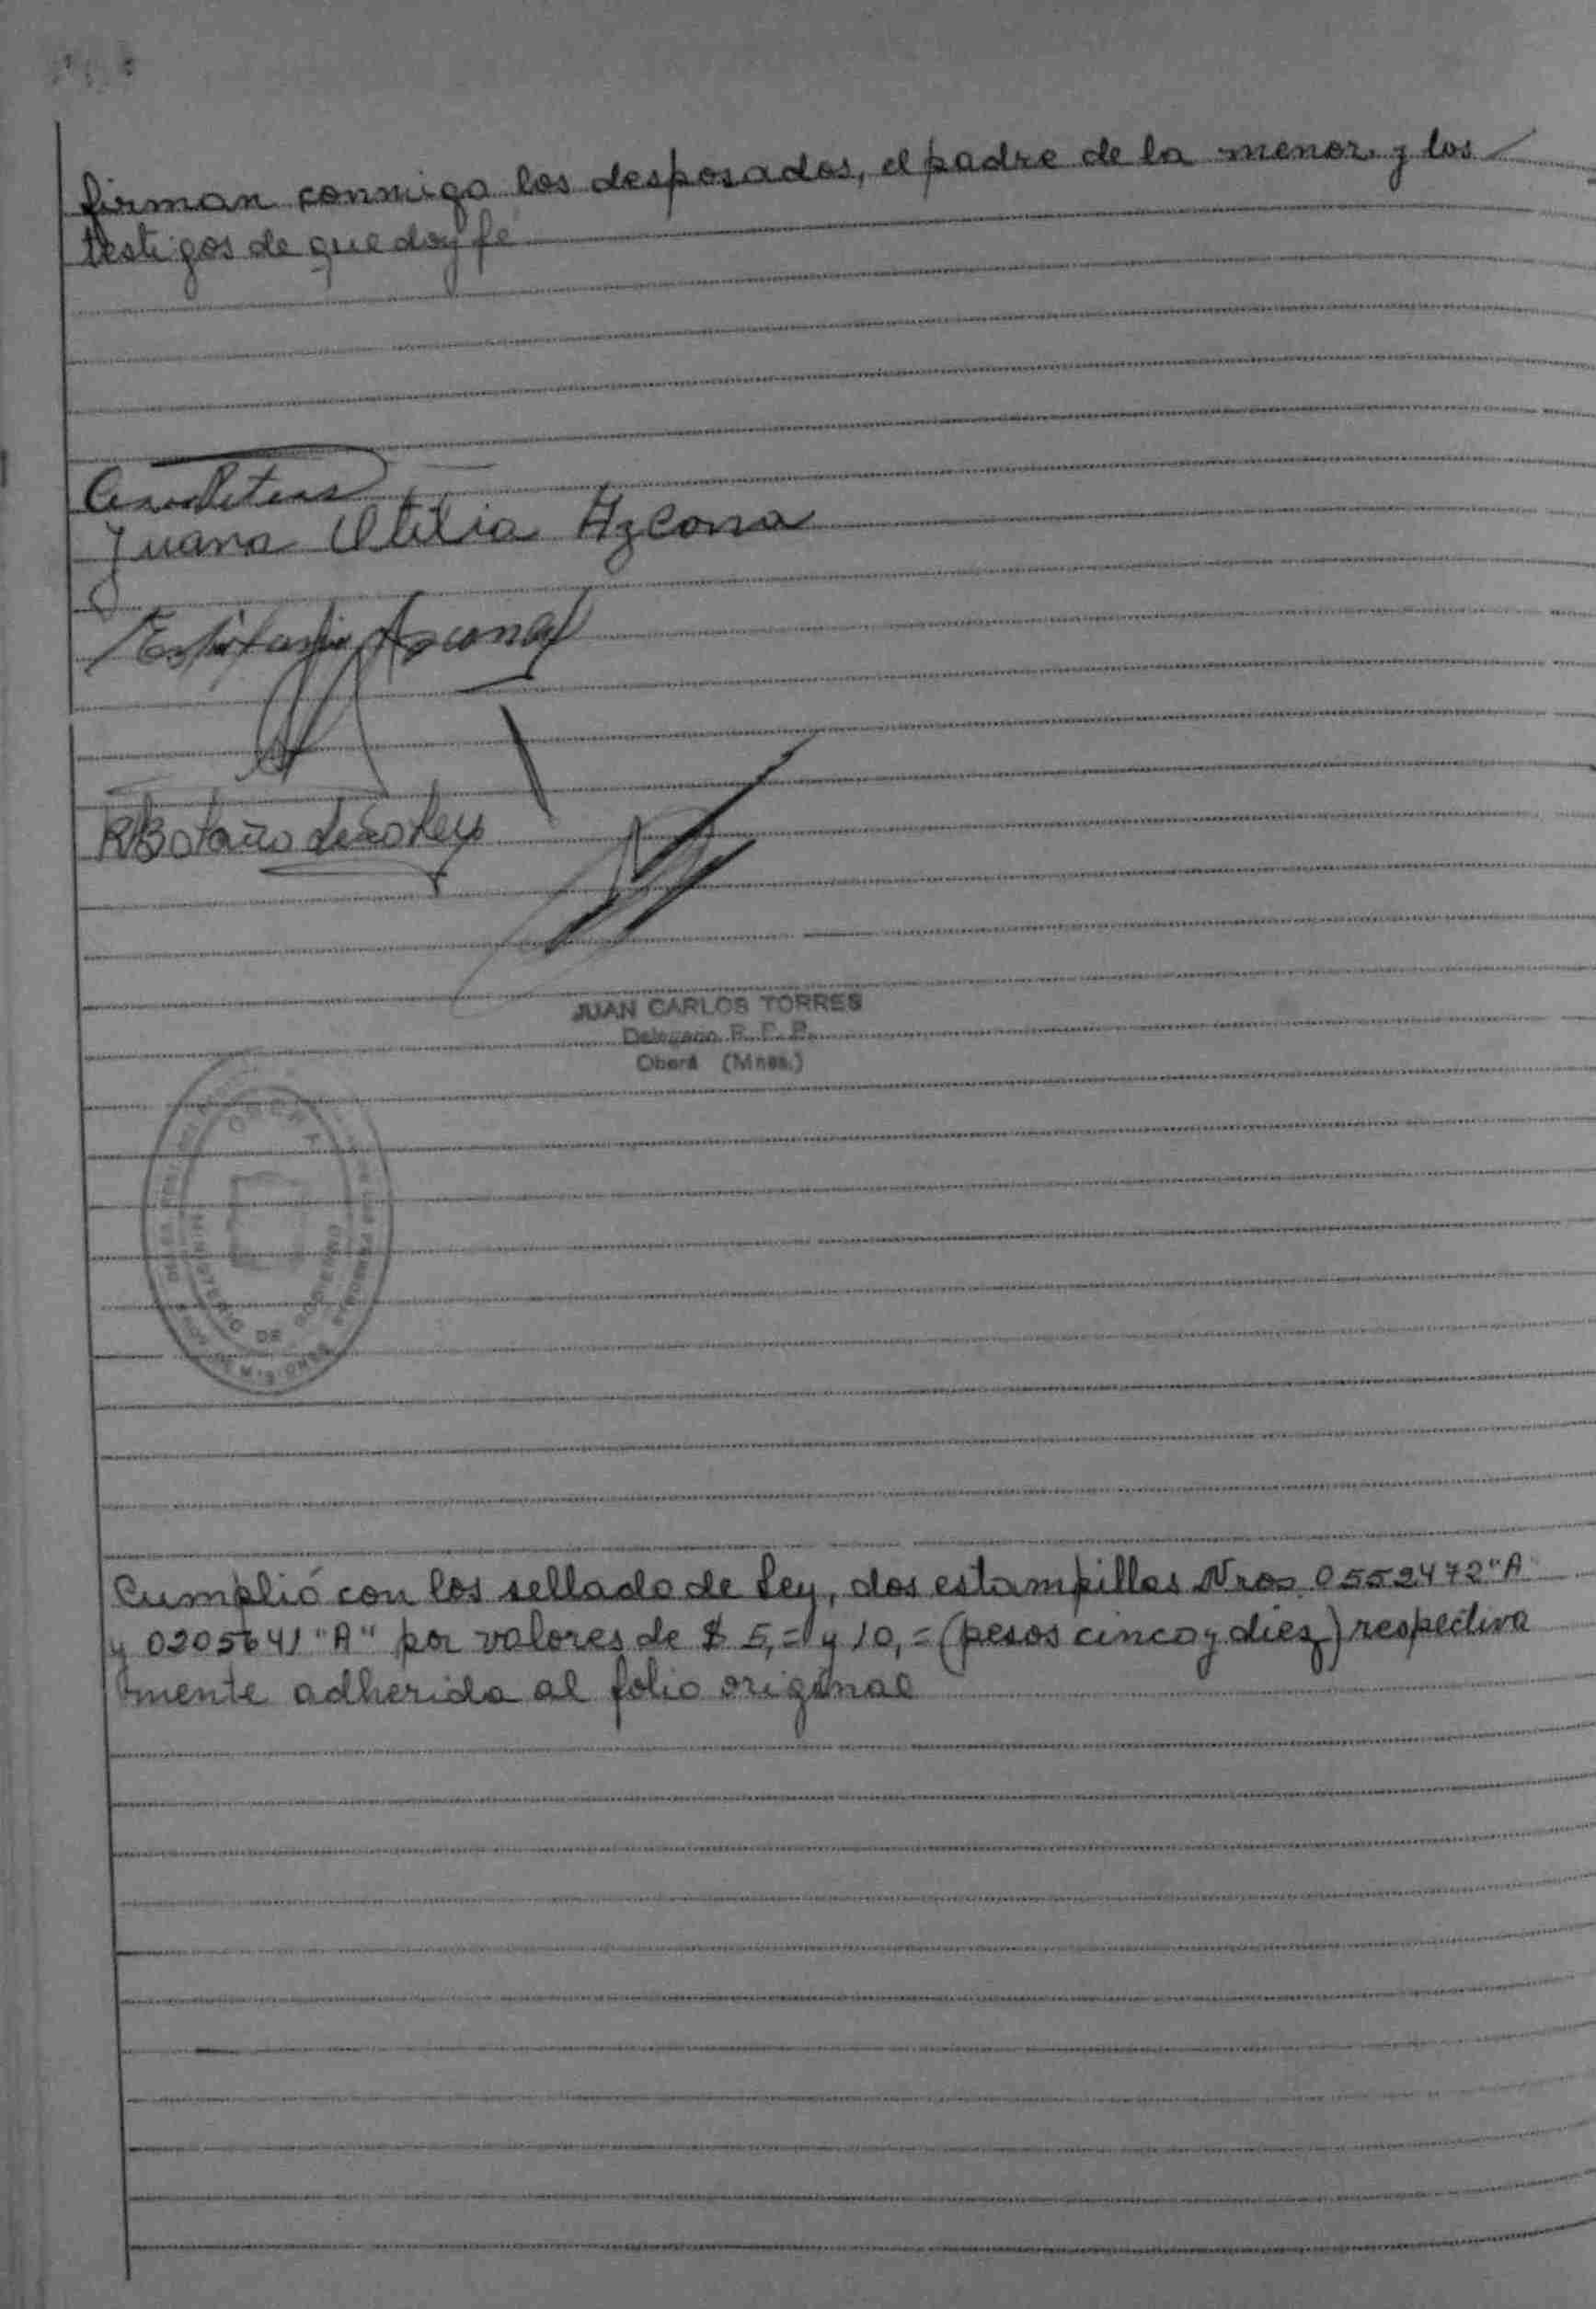 firman conmigo los desposados, el padre de la menor y los
testigos de que doy fé
Juana Otilia Azcona
Azcona
JUAN CARLOS TORRES
Delegado R. P. P.
Oberá (Mnes.)
OBERA
MINISTERIO DE GOBIERNO
DE MISIONES
Cumplió con los sellado de Ley, dos estampillas Nros 0552472 "A"
y 0205641 "A" por valores de $ 5,= y 10,= (pesos cinco y diez) respectiva
mente adherida al folio original